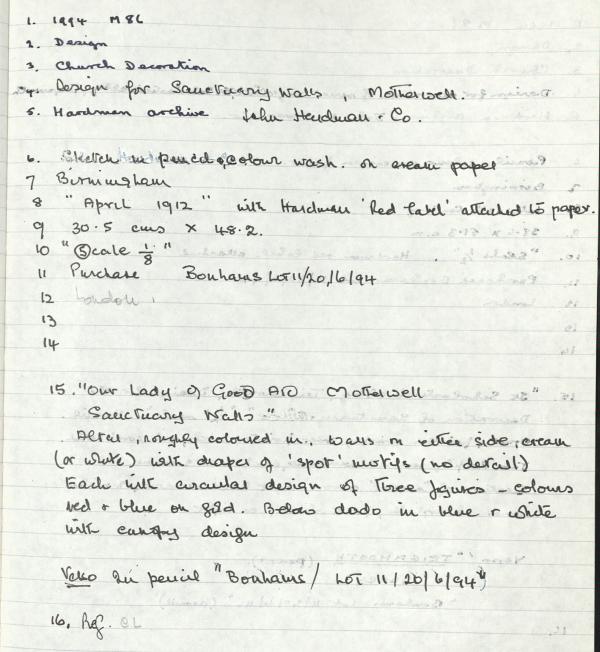 1. 1994 M86
2. Design
3. Church Decoration
4. Design for Sanctuary Walls, Motherwell.
5. Hardman archive John Hardman & Co.
6. Sketch in pencil & colour wash. on cream paper
7 Birmingham
8 "April 1912" with Hardman 'Red label' attached to paper.
9 30.5 cms x 48.2.
10 "Scale 1/8"
11 Purchase Bonhams LOT 11/20/6/94
12 London
13
14
15. "Our Lady of Good Aid Motherwell
Sanctuary Walls"
Altar, roughly coloured in, walls on either side, cream
(or white) with diaper of 'spot' motifs (no detail)
Each with circular design of three figures - colours
red & blue on gold. Below dado in blue & white
with canopy design
Verso In pencil "Bonhams/ LOT 11/20/6/94"
16. Ref.